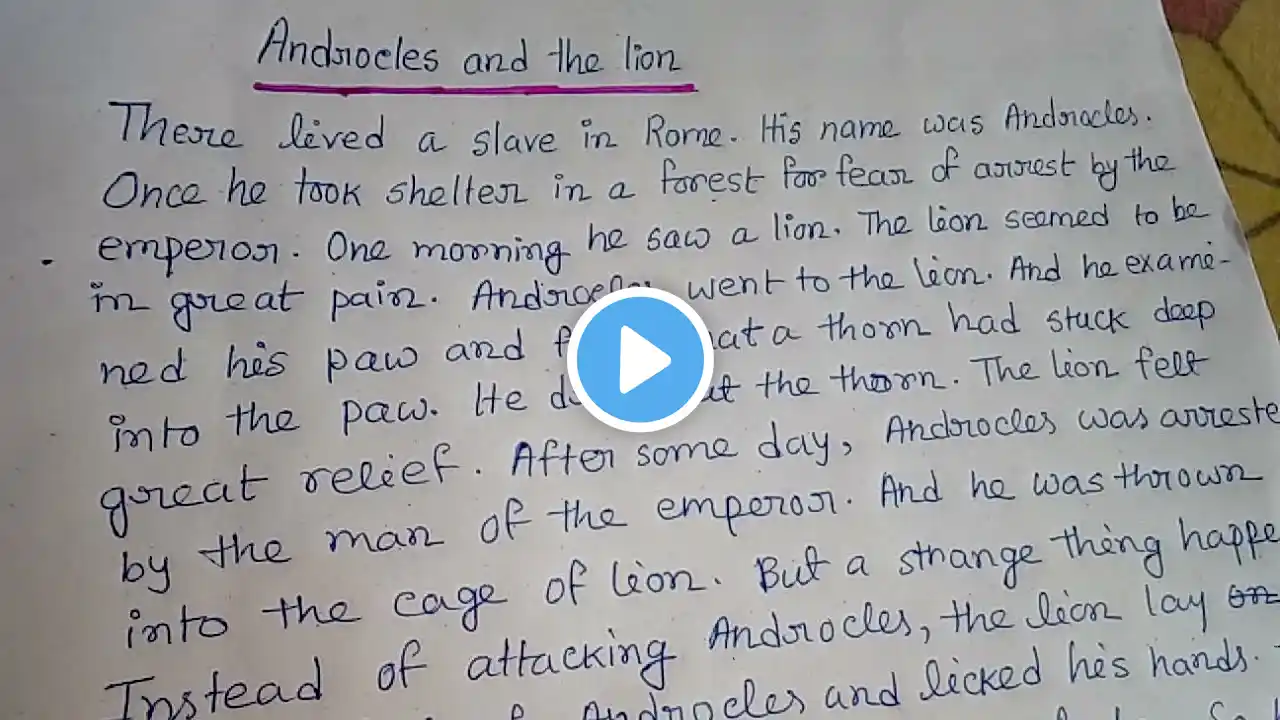 Androcles and the lion
There lived a slave in Rome. His name was Androcles.
Once he took shelter in a forest for fear of arrest by the
emperor. One morning he saw a lion. The lion seemed to be
in great pain. Androcles went to the lion. And he exami-
ned his paw and that a thorn had stuck deep
into the paw. He out the thorn. The lion felt
great relief. After some day, Androcles was arreste
by the man of the emperor. And he was thrown
into the cage of lion. But a strange thing happe
Instead of attacking Androcles, the lion lay on
Androcles and licked his hands.